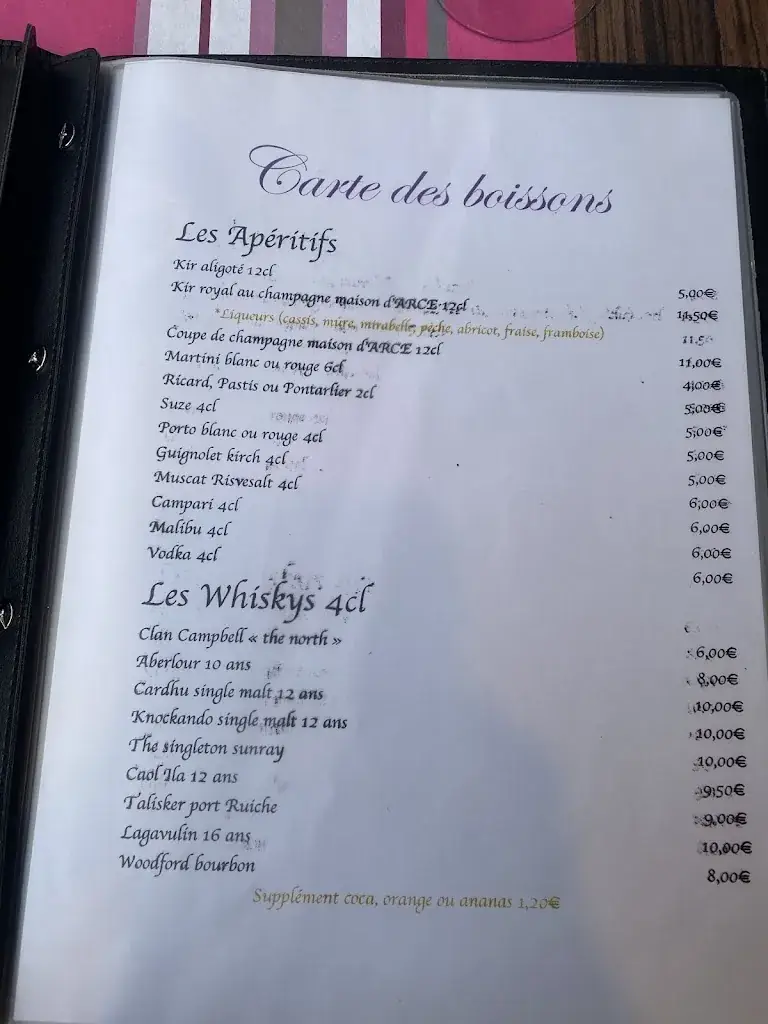 Carte des boissons
Les Apéritifs
Kir aligoté 12cl 5,00€
Kir royal au champagne maison d'ARCE 12cl 11,50€
*Liqueurs (cassis, mûre, mirabelle, pêche, abricot, fraise, framboise)
Coupe de champagne maison d'ARCE 12cl 11,00€
Martini blanc ou rouge 6cl 4,00€
Ricard, Pastis ou Pontarlier 2cl 5,00€
Suze 4cl 5,00€
Porto blanc ou rouge 4cl 5,00€
Guignolet kirch 4cl 5,00€
Muscat Risvesalt 4cl 6,00€
Campari 4cl 6,00€
Malibu 4cl 6,00€
Vodka 4cl 6,00€
Les Whiskys 4cl
Clan Campbell « the north » 6,00€
Aberlour 10 ans 8,00€
Cardhu single malt 12 ans 10,00€
Knockando single malt 12 ans 10,00€
The singleton sunray 10,00€
Caol Ila 12 ans 9,50€
Talisker port Ruiche 9,00€
Lagavulin 16 ans 10,00€
Woodford bourbon 8,00€
Supplément coca, orange ou ananas 1,20€